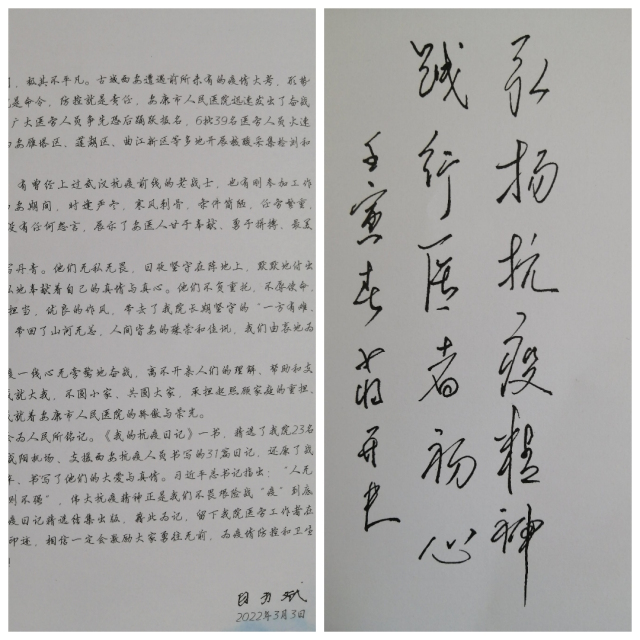 极其不平凡。古城西安遭遇前所未有的疫情大考，形势
就是命令，防控就是责任，安康市人民医院迅速发出了奋战
广大医务人员争先恐后踊跃报名，6批39名医务人员火速
西安雁塔区、莲湖区、曲江新区等多地开展核酸采集检测和
有曾经上过武汉抗疫前线的老战士，也有刚参加工作
西安期间，时逢严冬，寒风刺骨，条件简陋，任务繁重，
没有任何怨言，展示了安医人甘于奉献、勇于拼搏、最美
写丹青。他们无私无畏，日夜坚守在阵地上，默默地付出
地奉献着自己的真情与真心。他们不负重托，不辱使命，
担当、优良的作风，带去了我院长期坚守的“一方有难，
带回了山河无恙，人间皆安的臻荣和佳讯，我们由衷地为
一线心无旁骛地奋战，离不开亲人们的理解、帮助和支
成就大我，不图小家，共圆大家，承担起照顾家庭的重担、
就着安康市人民医院的骄傲与荣光。
会为人民所铭记。《我的抗疫日记》一书，精选了我院23名
咸阳机场、支援西安抗疫人员书写的31篇日记，还原了战
书写了他们的大爱与真情。习近平总书记指出：“人无
则不强”，伟大抗疫精神正是我们不畏艰险战“疫”到底
疫日记精选结集出版，藉此为记，留下我院医务工作者在
印迹，相信一定会激励大家勇往无前，为疫情防控和卫生
2022年3月3日
弘扬抗疫精神
践行医者初心
壬寅春 翁开史